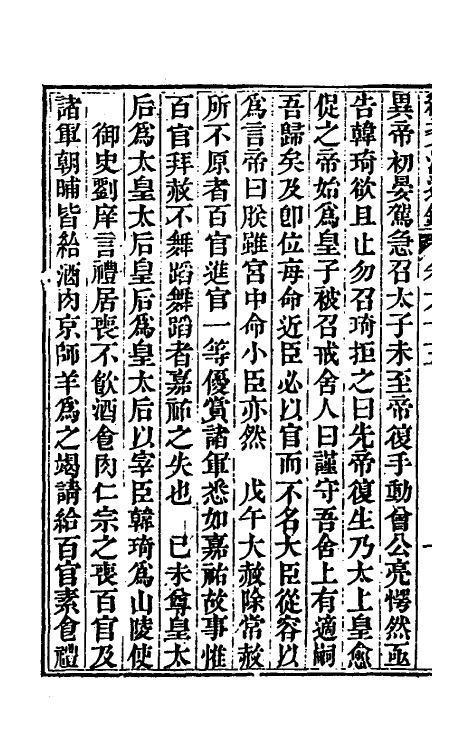 異帝初晏駕急召太子未至帝復手動曾公亮愕然亟
告韓琦欲且止勿召琦拒之曰先帝復生乃太上皇愈
促之帝始爲皇子被召戒舍人曰謹守吾舍上有適嗣
吾歸矣及卽位每命近臣必以官而不名大臣從容以
爲言帝曰朕雖宮中命小臣亦然　戊午大赦除常赦
所不原者百官進官一等優賞諸軍悉如嘉祐故事惟
百官拜赦不舞蹈舞蹈者嘉祐之失也　己未尊皇太
后爲太皇太后皇后爲皇太后以宰臣韓琦爲山陵使
御史劉庠言禮居喪不飲酒食肉仁宗之喪百官及
諸軍朝晡皆給酒肉京師羊爲之竭請給百官素食禮